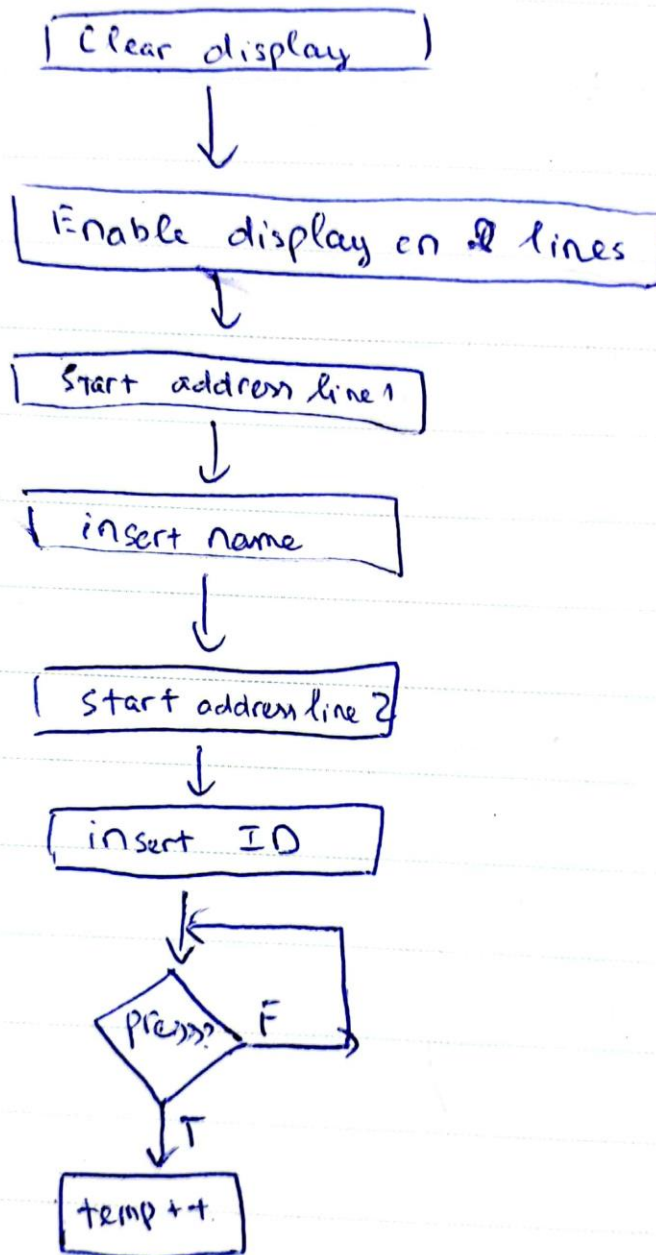 Clear display
Enable display on 2 lines
Start address line 1
insert name
start address line 2
insert ID
press?
F
T
temp++